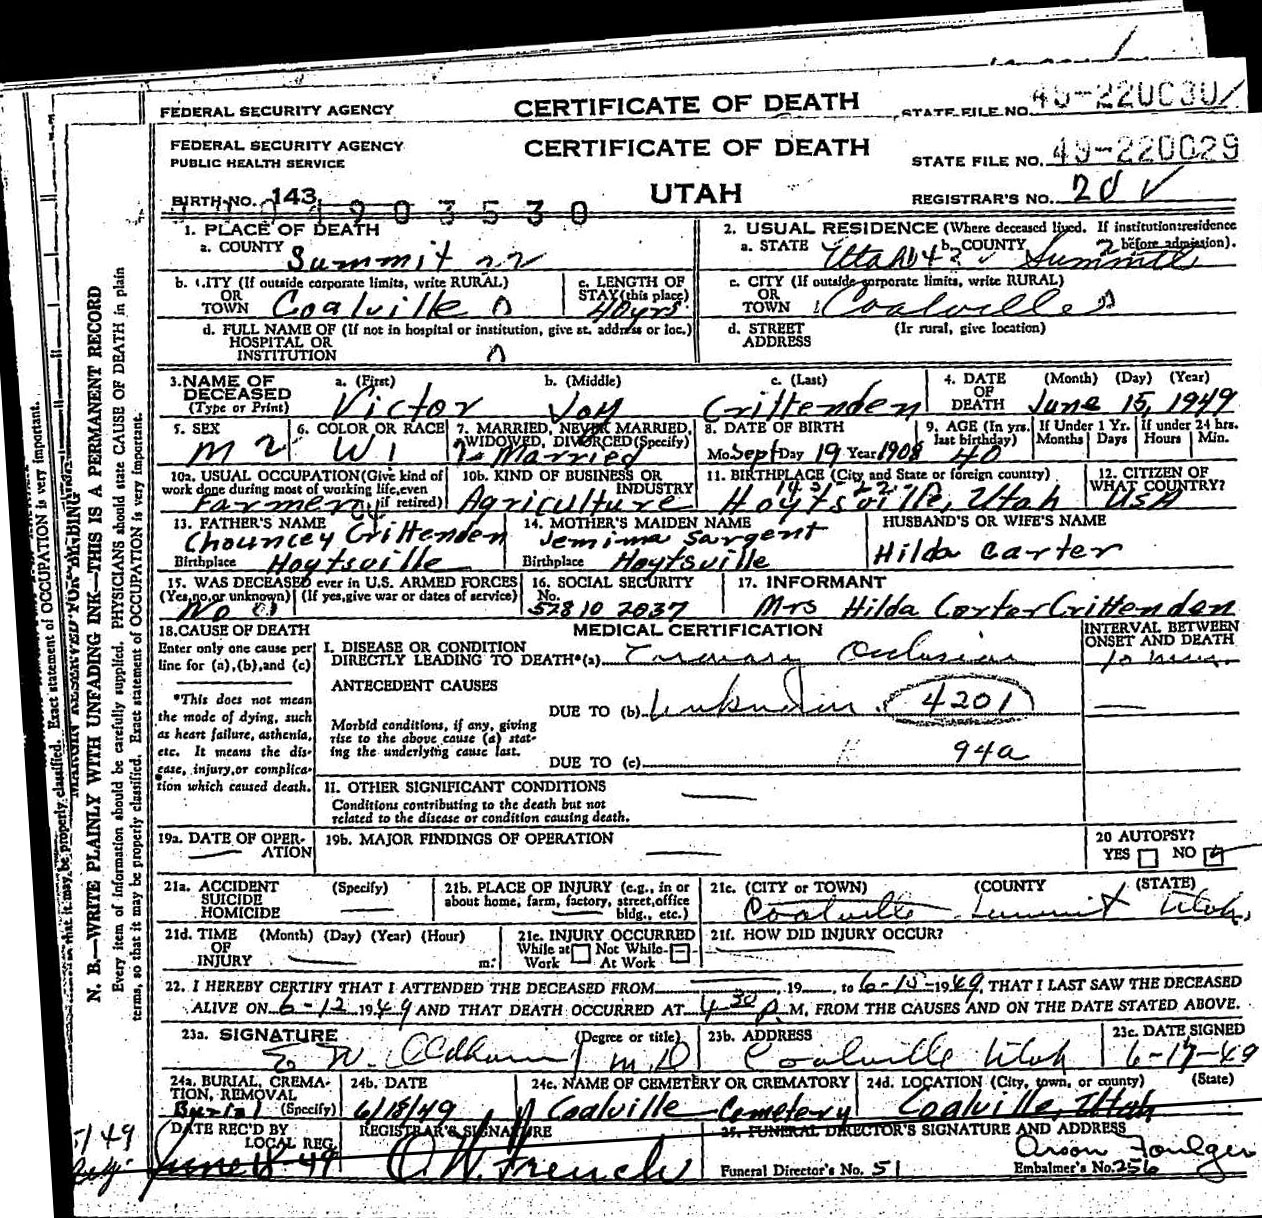 FEDERAL SECURITY AGENCY CERTIFICATE OF DEATH STATE FILE NO.
FEDERAL SECURITY AGENCY CERTIFICATE OF DEATH STATE FILE NO. 49-220029
PUBLIC HEALTH SERVICE
BIRTH NO. 143 UTAH REGISTRAR'S NO. 20 ✓
903530
1. PLACE OF DEATH 2. USUAL RESIDENCE (Where deceased lived. If institution:residence before admission).
a. COUNTY Summit 22 a. STATE Utah 43 b. COUNTY Summit 2
b. CITY (If outside corporate limits, write RURAL) OR TOWN Coalville c. LENGTH OF STAY (this place) 40yrs c. CITY (If outside corporate limits, write RURAL) OR TOWN Coalville
d. FULL NAME OF (If not in hospital or institution, give st. address or loc.) HOSPITAL OR INSTITUTION d. STREET ADDRESS (Ir rural, give location)
3. NAME OF DECEASED (Type or Print) a. (First) Victor b. (Middle) Joy c. (Last) Crittenden 4. DATE OF DEATH (Month) (Day) (Year) June 15, 1949
5. SEX M 2 6. COLOR OR RACE W 1 7. MARRIED, NEVER MARRIED, WIDOWED, DIVORCED (Specify) 2- Married 8. DATE OF BIRTH Mo. Sept Day 19 Year 1908 9. AGE (In yrs. last birthday) 40 If Under 1 Yr. Months Days If under 24 hrs. Hours Min.
10a. USUAL OCCUPATION (Give kind of work done during most of working life, even if retired) Farmer 10b. KIND OF BUSINESS OR INDUSTRY Agriculture 11. BIRTHPLACE (City and State or foreign country) Hoytsville, Utah 12. CITIZEN OF WHAT COUNTRY? USA
13. FATHER'S NAME Chouncey Crittenden 14. MOTHER'S MAIDEN NAME Jemima Sargent HUSBAND'S OR WIFE'S NAME Hilda Carter
Birthplace Hoytsville Birthplace Hoytsville
15. WAS DECEASED ever in U.S. ARMED FORCES (Yes, no, or unknown) (If yes, give war or dates of service) No 16. SOCIAL SECURITY No. 528 10 2037 17. INFORMANT Mrs Hilda Carter Crittenden
18. CAUSE OF DEATH MEDICAL CERTIFICATION INTERVAL BETWEEN ONSET AND DEATH
Enter only one cause per line for (a), (b), and (c)
I. DISEASE OR CONDITION DIRECTLY LEADING TO DEATH*(a) Coronary Occlusion 10 min.
*This does not mean the mode of dying, such as heart failure, asthenia, etc. It means the disease, injury, or complication which caused death.
ANTECEDENT CAUSES
DUE TO (b) Unknown 4201
Morbid conditions, if any, giving rise to the above cause (a) stating the underlying cause last.
DUE TO (c) 94a
II. OTHER SIGNIFICANT CONDITIONS
Conditions contributing to the death but not related to the disease or condition causing death.
19a. DATE OF OPERATION 19b. MAJOR FINDINGS OF OPERATION 20 AUTOPSY? YES NO
21a. ACCIDENT SUICIDE HOMICIDE (Specify) 21b. PLACE OF INJURY (e.g., in or about home, farm, factory, street, office bldg., etc.) 21c. (CITY or TOWN) (COUNTY) (STATE) Coalville Summit Utah
21d. TIME OF INJURY (Month) (Day) (Year) (Hour) m. 21e. INJURY OCCURRED While at Work Not While At Work 21f. HOW DID INJURY OCCUR?
22. I HEREBY CERTIFY THAT I ATTENDED THE DECEASED FROM , 19 , to 6-15-1949, THAT I LAST SAW THE DECEASED
ALIVE ON 6-12 1949 AND THAT DEATH OCCURRED AT 4 30 P M, FROM THE CAUSES AND ON THE DATE STATED ABOVE.
23a. SIGNATURE E W. Oldham (Degree or title) M.D 23b. ADDRESS Coalville Utah 23c. DATE SIGNED 6-17-49
24a. BURIAL, CREMATION, REMOVAL (Specify) Burial 24b. DATE 6/18/49 24c. NAME OF CEMETERY OR CREMATORY Coalville Cemetery 24d. LOCATION (City, town, or county) (State) Coalville, Utah
DATE REC'D BY LOCAL REG. June 18-49 REGISTRAR'S SIGNATURE O.W. French 25. FUNERAL DIRECTOR'S SIGNATURE AND ADDRESS Orson Foulger
Funeral Director's No. 51 Embalmer's No. 256
N. B.—WRITE PLAINLY WITH UNFADING INK—THIS IS A PERMANENT RECORD
Every item of information should be carefully supplied. PHYSICIANS should state CAUSE OF DEATH in plain
terms, so that it may be properly classified. Exact statement of OCCUPATION is very important.
MARGIN RESERVED FOR BINDING